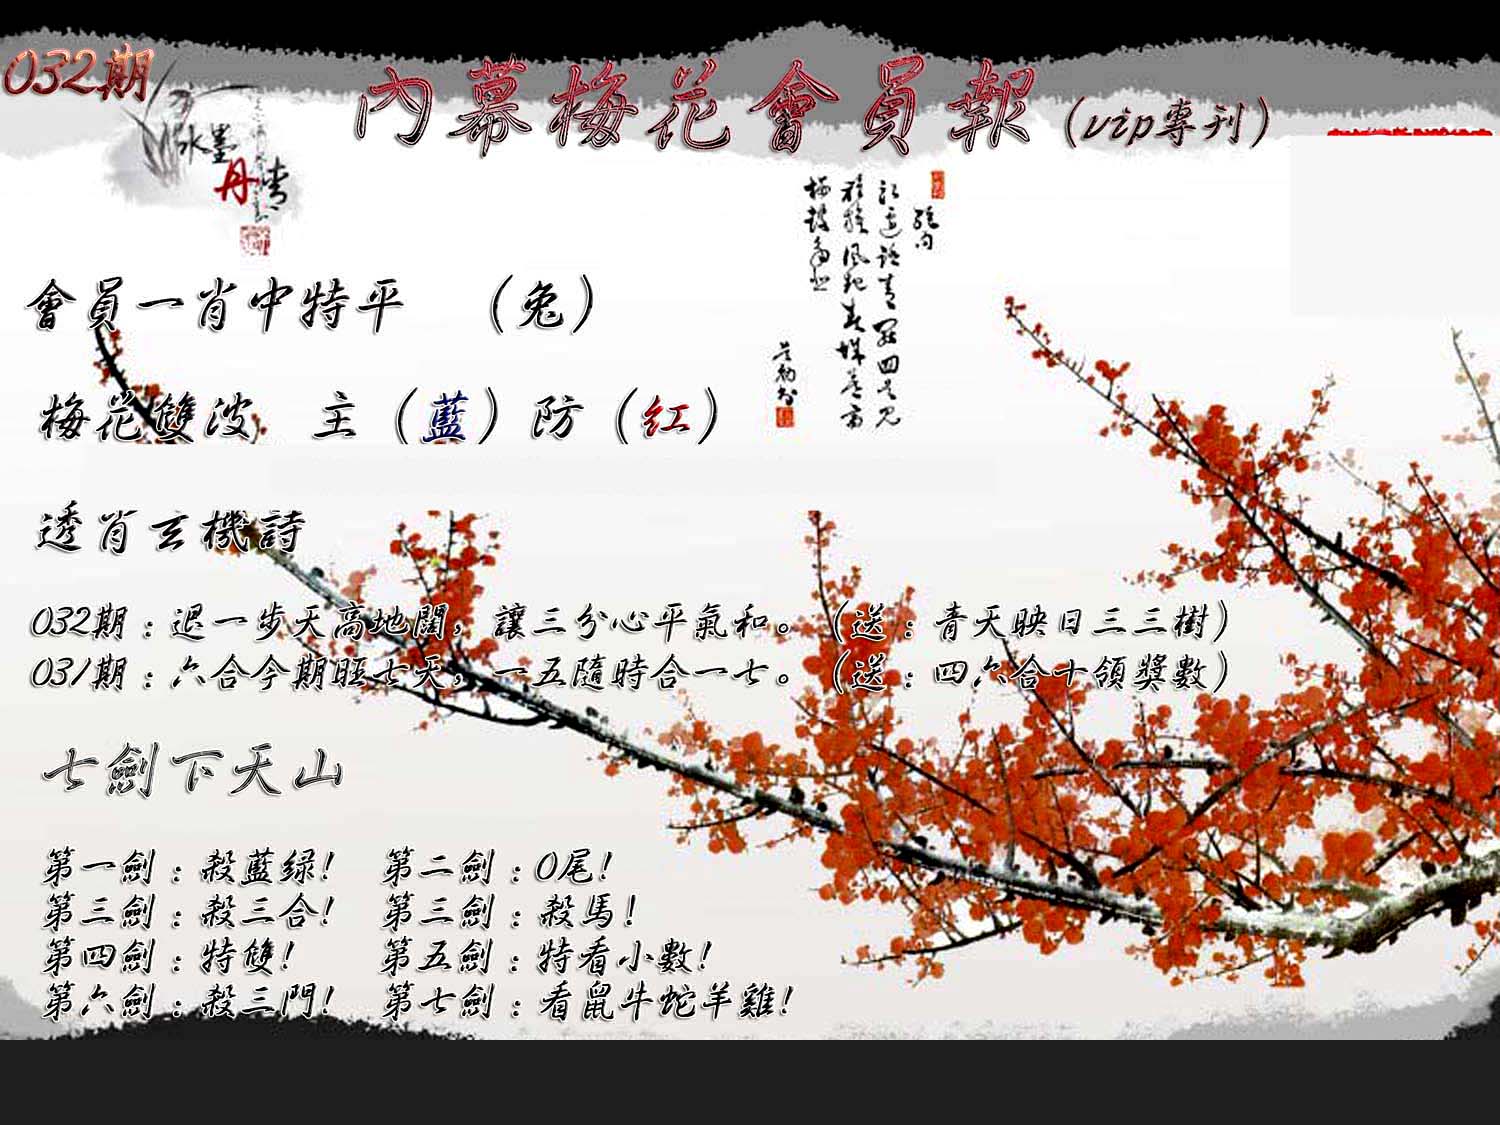 032期
內幕梅花會員報(vip專刊)
水墨
丹青
會員一肖中特平 (兔)
梅花雙波 主(藍)防(紅)
透肖玄機詩
032期:退一步天高地闊,讓三分心平氣和。(送:青天映日三三樹)
031期:六合今期旺七天,一五隨時合一七。(送:四六合十領獎數)
七劍下天山
第一劍:殺藍绿! 第二劍:0尾!
第三劍:殺三合! 第三劍:殺馬!
第四劍:特雙! 第五劍:特看小數!
第六劍:殺三門! 第七劍:看鼠牛蛇羊雞!